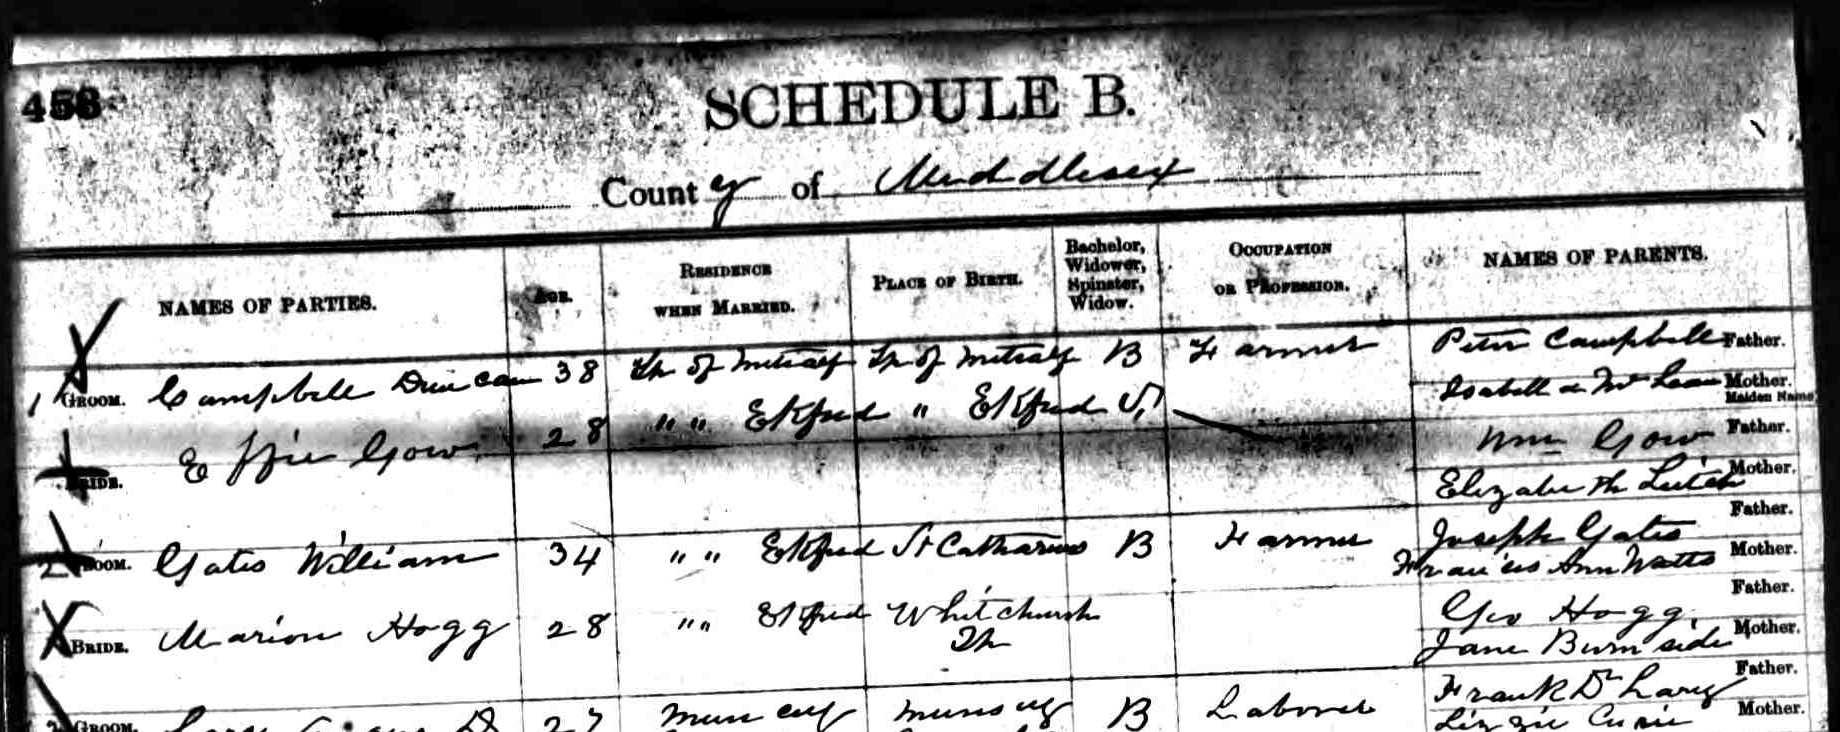 458
SCHEDULE B.
County of Middlesex
NAMES OF PARTIES.
AGE.
RESIDENCE WHEN MARRIED.
PLACE OF BIRTH.
Bachelor, Widower, Spinster, Widow.
OCCUPATION OR PROFESSION.
NAMES OF PARENTS.
1 GROOM. Campbell Duncan 38 Tp of Metcalf Tp of Metcalf B Farmer Peter Campbell Father.
Isabella McLean Mother. Maiden Name
BRIDE. Effie Gow 28 " " Ekfrid " Ekfrid S Wm Gow Father.
Elizabeth Leitch Mother.
2 GROOM. Gates William 34 " " Ekfrid St Catharines B Farmer Joseph Gates Father.
Francis Ann Watts Mother.
BRIDE. Marion Hogg 28 " " Ekfrid Whitchurch Tp Geo Hogg Father.
Jane Burnside Mother.
GROOM. 27 Muncey Munsey B Laborer Frank D Father.
Lizzie Mother.